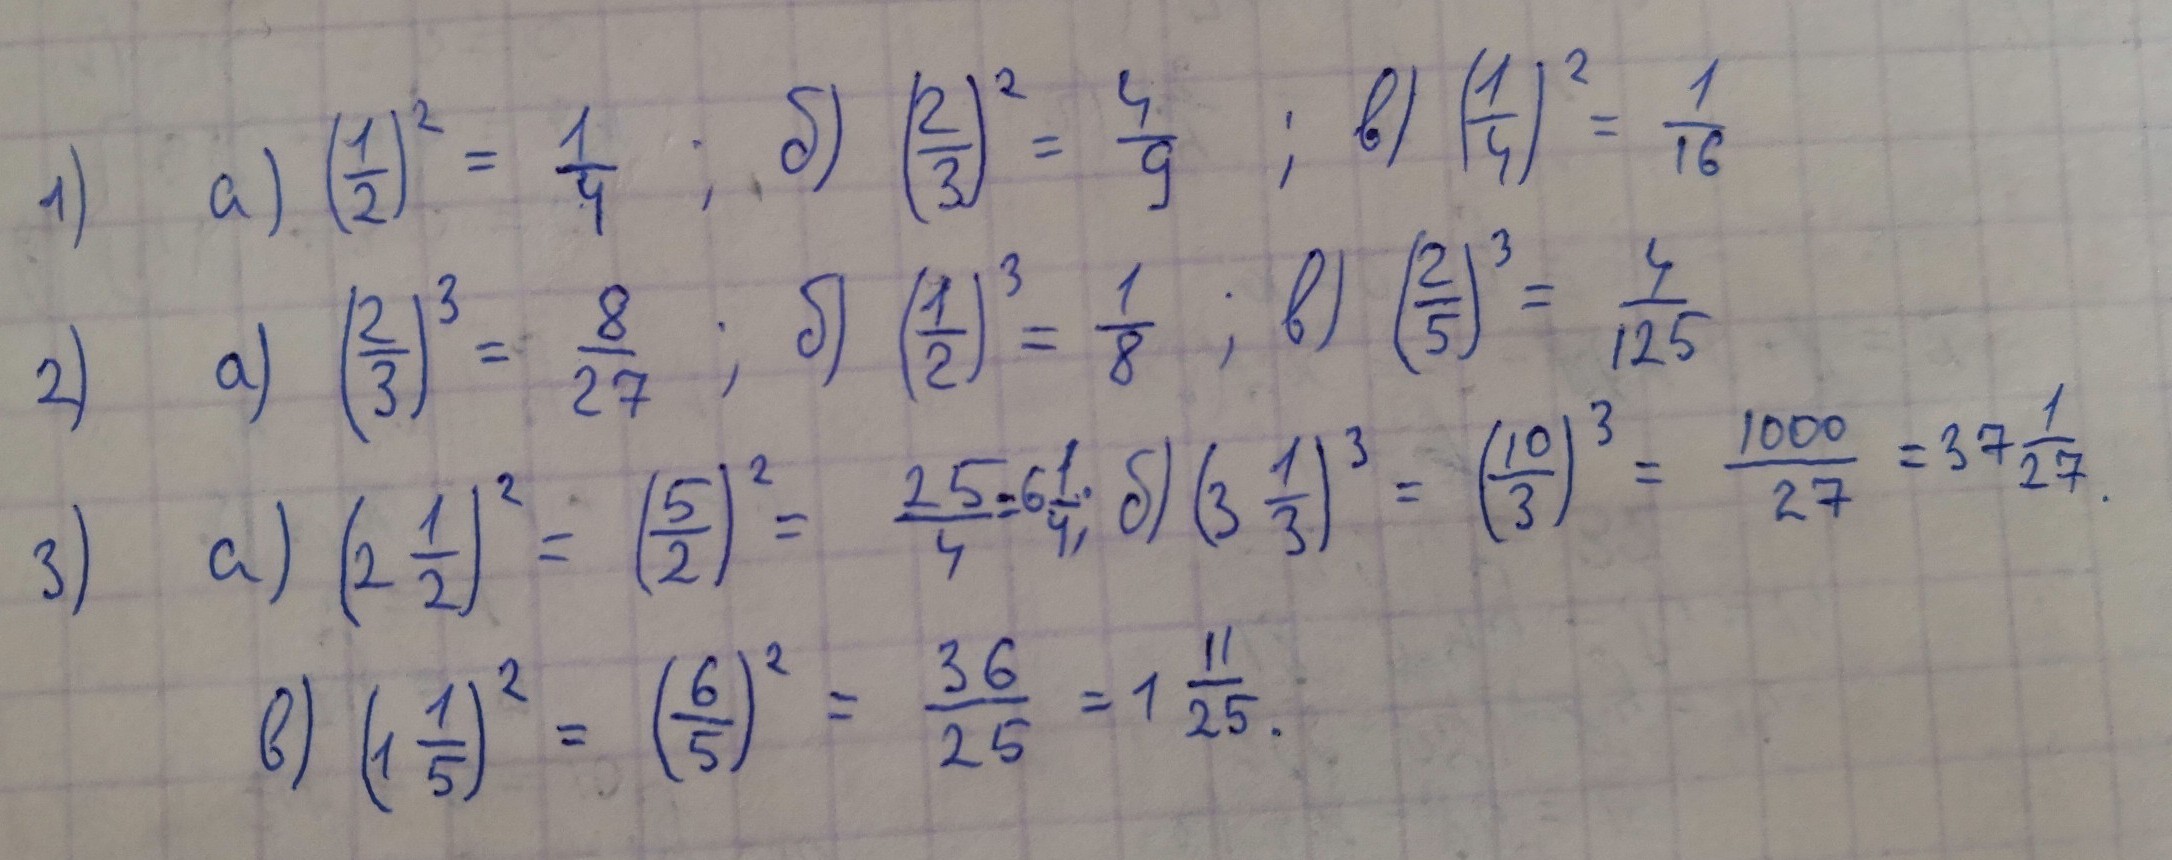 1) а) (1/2)² = 1/4 ; б) (2/3)² = 4/9 ; в) (1/4)² = 1/16
2) а) (2/3)³ = 8/27 ; б) (1/2)³ = 1/8 ; в) (2/5)³ = 4/125
3) а) (2 1/2)² = (5/2)² = 25/4 = 6 1/4; б) (3 1/3)³ = (10/3)³ = 1000/27 = 37 1/27.
в) (1 1/5)² = (6/5)² = 36/25 = 1 11/25.